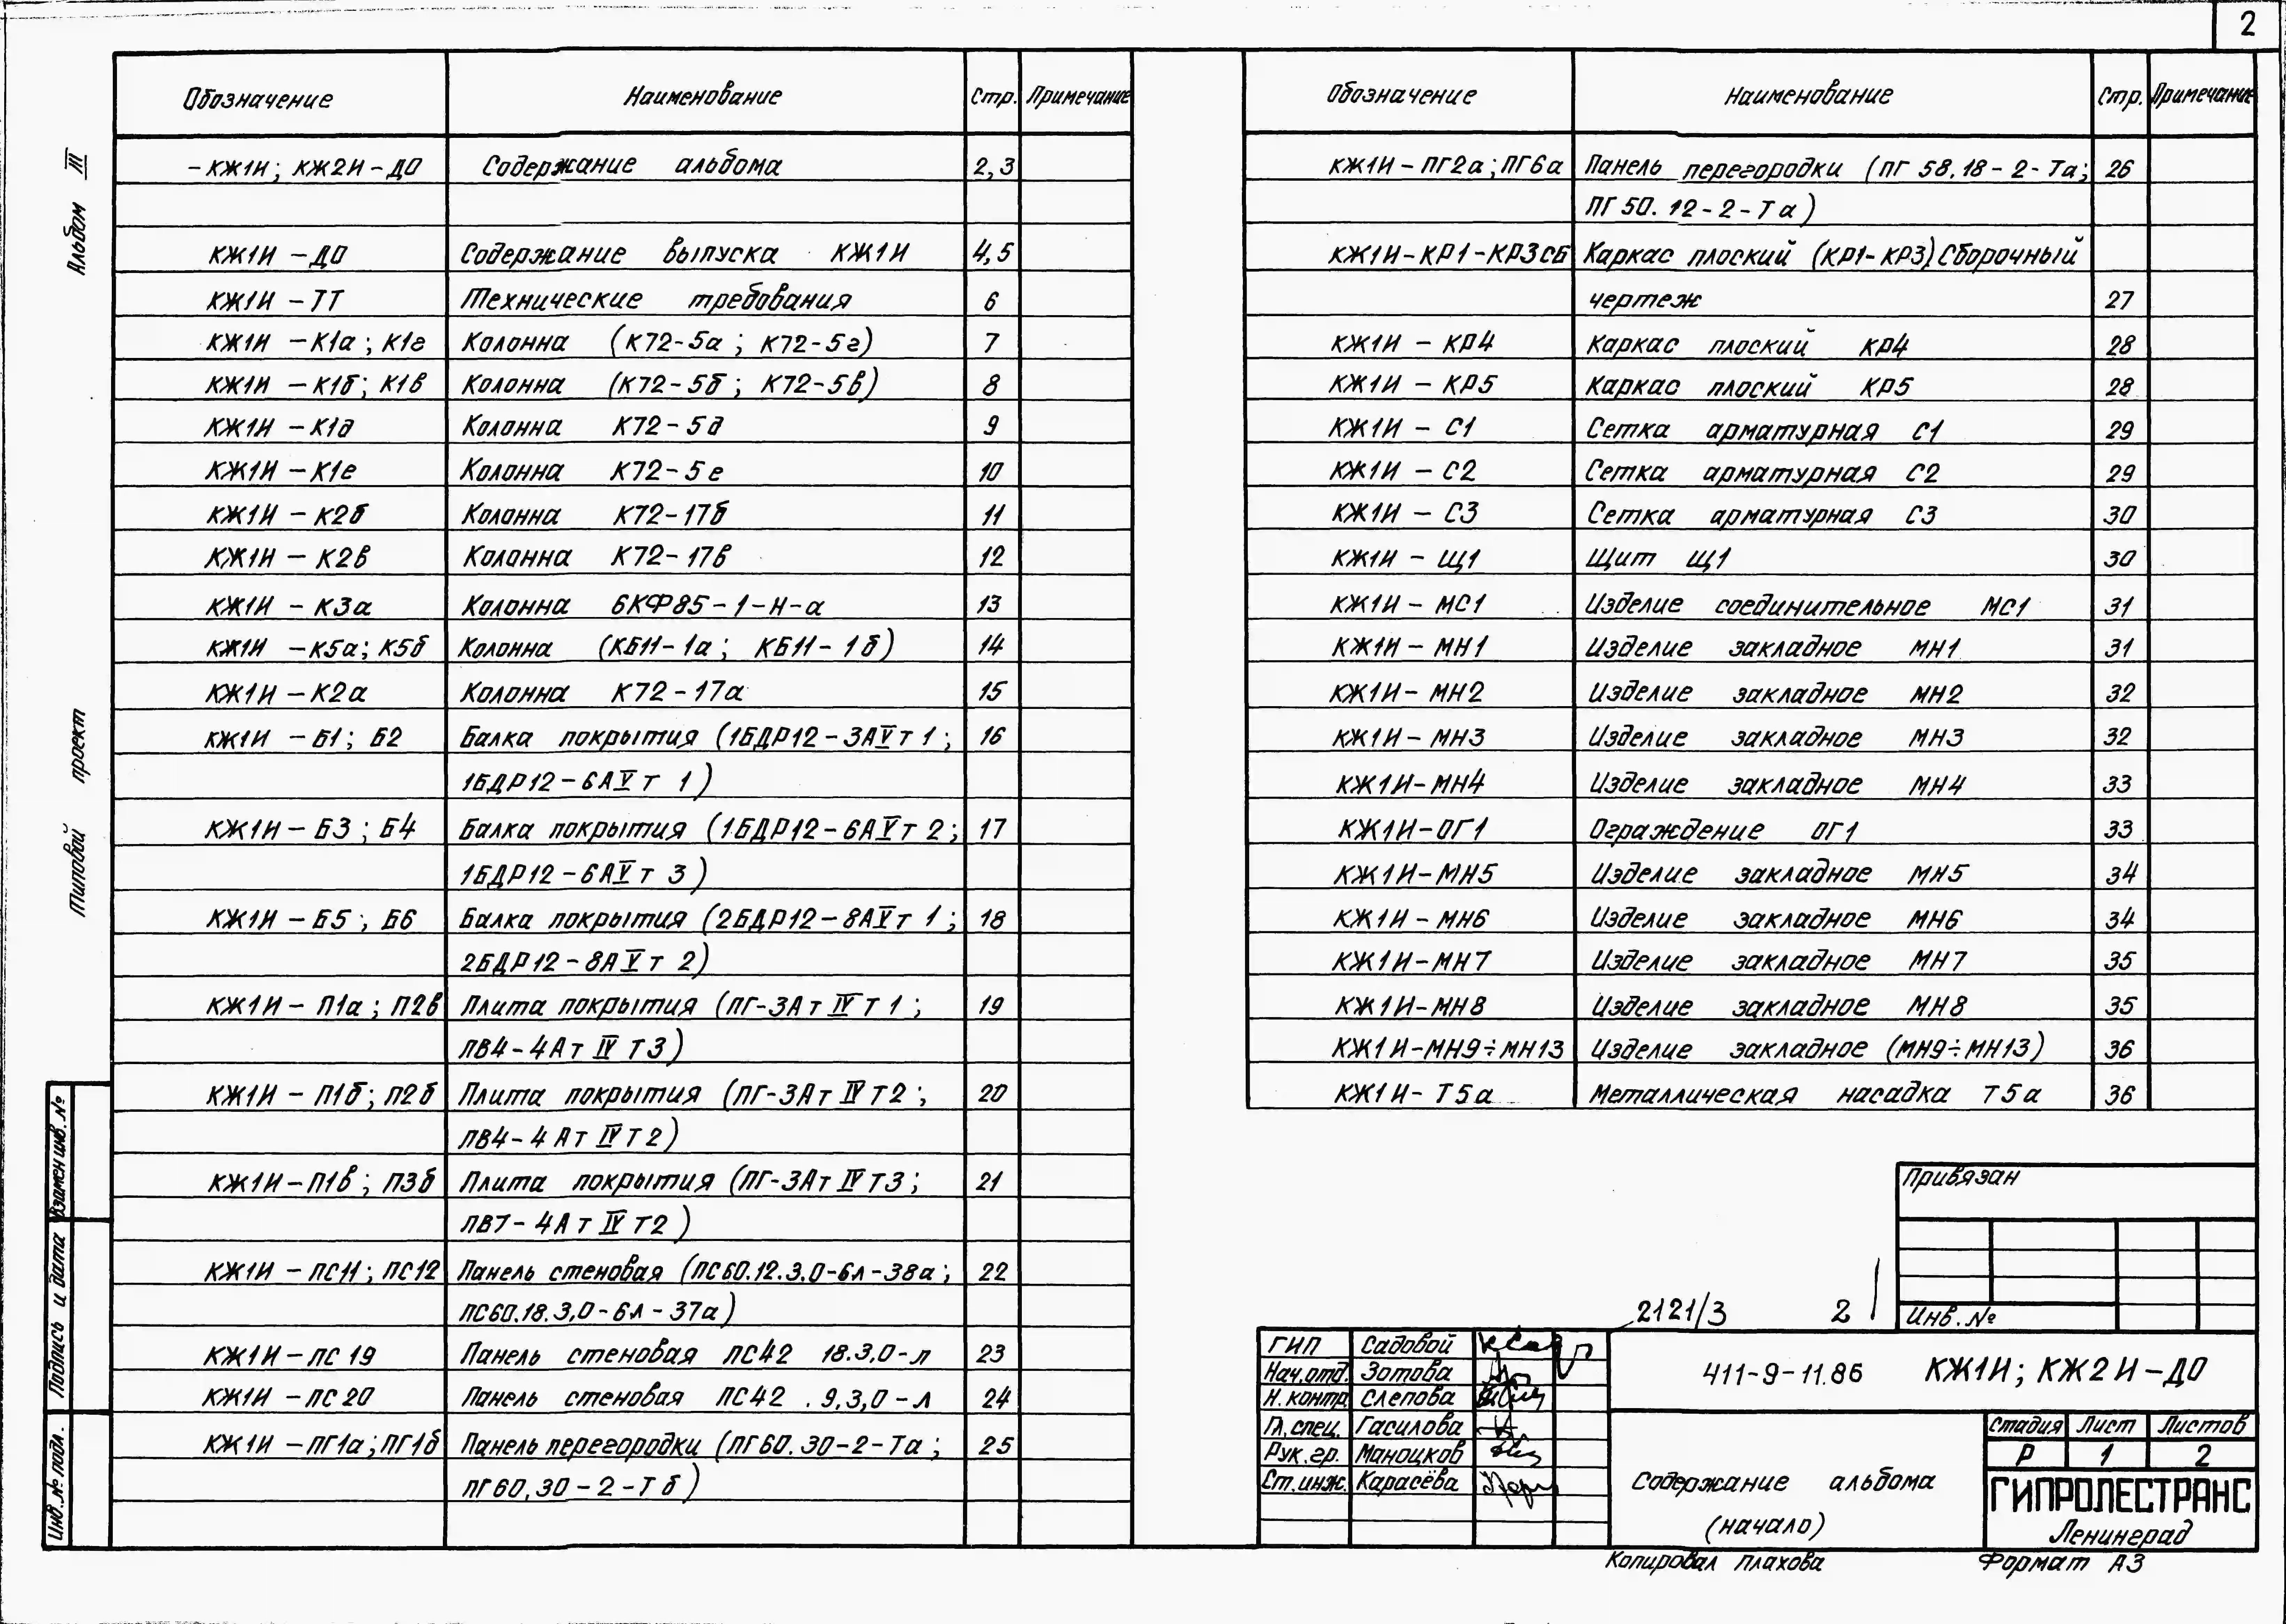 2
Альбом III
Типовой проект
Взамен инв. №
Подпись и дата
Инв. № подл.
Обозначение Наименование Стр. Примечание
-КЖ1И; КЖ2И-ДО Содержание альбома 2,3
КЖ1И -ДО Содержание выпуска КЖ1И 4,5
КЖ1И -ТТ Технические требования 6
КЖ1И -К1а; К1г Колонна (К72-5а; К72-5г) 7
КЖ1И -К1б; К1в Колонна (К72-5б; К72-5в) 8
КЖ1И -К1д Колонна К72-5д 9
КЖ1И -К1е Колонна К72-5е 10
КЖ1И -К2б Колонна К72-17б 11
КЖ1И - К2в Колонна К72-17в 12
КЖ1И - К3а Колонна 6КФ85-1-Н-а 13
КЖ1И -К5а; К5б Колонна (КБ11-1а; КБ11-1б) 14
КЖ1И -К2а Колонна К72-17а 15
КЖ1И -Б1; Б2 Балка покрытия (1БДР12-3АVт 1; 16
1БДР12-6АVт 1)
КЖ1И - Б3; Б4 Балка покрытия (1БДР12-6АVт 2; 17
1БДР12-6АVт 3)
КЖ1И - Б5; Б6 Балка покрытия (2БДР12-8АVт 1; 18
2БДР12-8АVт 2)
КЖ1И - П1а; П2в Плита покрытия (ПГ-3Ат IV Т 1; 19
ПВ4-4Ат IV Т3)
КЖ1И - П1б; П2б Плита покрытия (ПГ-3Ат IV Т2; 20
ПВ4-4Ат IV Т2)
КЖ1И-П1в; П3б Плита покрытия (ПГ-3Ат IV Т3; 21
ПВ7-4Ат IV Т2)
КЖ1И - ПС11; ПС12 Панель стеновая (ПС60.12.3.0-6л-38а; 22
ПС60.18.3,0-6л-37а)
КЖ1И-ПС 19 Панель стеновая ПС42 18.3,0-л 23
КЖ1И -ПС 20 Панель стеновая ПС42 .9,3,0-л 24
КЖ1И -ПГ1а; ПГ1б Панель перегородки (ПГ60.30-2-Та; 25
ПГ60,30-2-Тб)
Обозначение Наименование Стр. Примечание
КЖ1И-ПГ2а; ПГ6а Панель перегородки (ПГ 58.18-2-Та; 26
ПГ50.12-2-Та)
КЖ1И-КР1-КР3СБ Каркас плоский (КР1-КР3) Сборочный
чертеж 27
КЖ1И - КР4 Каркас плоский КР4 28
КЖ1И - КР5 Каркас плоский КР5 28
КЖ1И - С1 Сетка арматурная С1 29
КЖ1И - С2 Сетка арматурная С2 29
КЖ1И - С3 Сетка арматурная С3 30
КЖ1И - Щ1 Щит Щ1 30
КЖ1И - МС1 Изделие соединительное МС1 31
КЖ1И - МН1 Изделие закладное МН1 31
КЖ1И- МН2 Изделие закладное МН2 32
КЖ1И- МН3 Изделие закладное МН3 32
КЖ1И-МН4 Изделие закладное МН4 33
КЖ1И-ОГ1 Ограждение ОГ1 33
КЖ1И-МН5 Изделие закладное МН5 34
КЖ1И - МН6 Изделие закладное МН6 34
КЖ1И-МН7 Изделие закладное МН7 35
КЖ1И-МН8 Изделие закладное МН8 35
КЖ1И-МН9÷МН13 Изделие закладное (МН9÷МН13) 36
КЖ1И- Т5а Металлическая насадка Т5а 36
Привязан
Инв. №
2121/3 2
ГИП Садовой
Нач.отд. Зотова
Н. контр. Слепова
Гл. спец. Гасилова
Рук. гр. Маноцков
Ст. инж. Карасёва
411-9-11.86 КЖ1И; КЖ2И-ДО
Содержание альбома
(начало)
Стадия Лист Листов
Р 1 2
ГИПРОЛЕСТРАНС
Ленинград
Копировал Плахова Формат А3